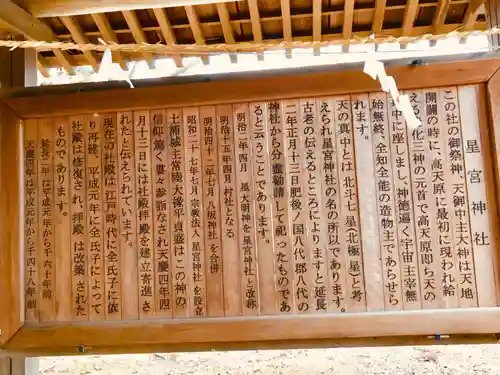 星宮神社
この社の御祭神、天御中主大神は天地
開闢の時に、高天原に最初に現われ給
う造化三神の元首で高天原即ち天の
中に座しまし、神徳遍く宇宙主宰無
始無終、全知全能の造物主であらせら
れます。
天の真中とは北斗七星(北極星)と考
えられ星宮神社の名の所以であります。
古老の伝えるところによりますと延長
二年正月十三日肥後ノ国八代郡八代の
神社から分霊勧請して祀ったものであ
ると云うことであります。
明治二年四月 星大明神を星宮神社と改称
明治十五年四月 村社となる
明治四十二年七月八坂神社を合併
昭和二十七年七月宗教法人星宮神社を設立
土浦城主常陸大掾平貞盛はこの神の
信仰篤く屡々参詣なされ天慶四年
十月十三日には社殿拝殿を建立寄進さ
れたと伝えられています。
現在の社殿は江戸時代に全氏子に依
り再建、平成元年に全氏子によって
社殿は修復され、拝殿は改築された
ものであります。
延長二年は平成元年から千六十年前
天慶四年は平成元年から千四十八年前